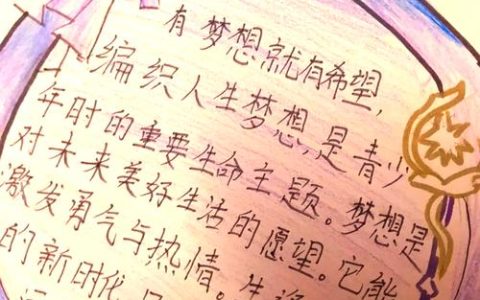 有梦想就有希望,
编织人生梦想,是青少
年时的重要生命主题。梦想是
对未来美好生活的愿望。它能
激发勇气与热情。生
的新时代